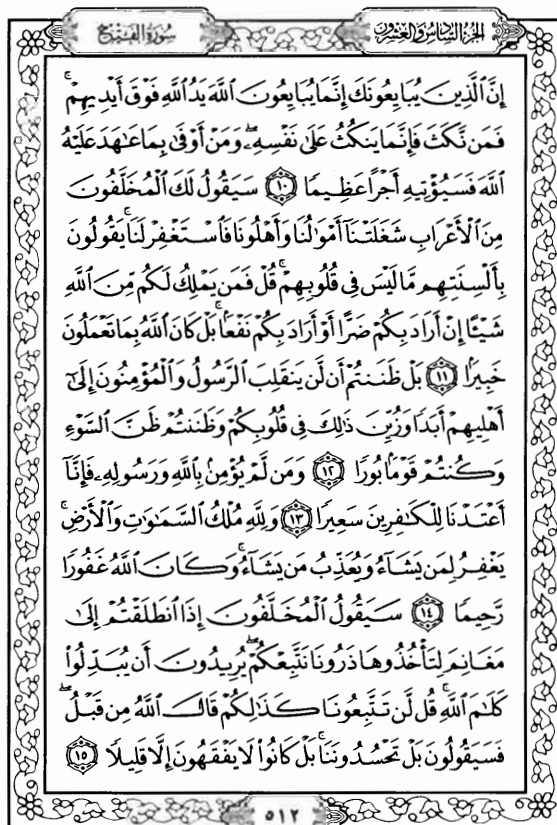 الجزء السادس والعشرون
سورة الفتح
إِنَّ ٱلَّذِينَ يُبَايِعُونَكَ إِنَّمَا يُبَايِعُونَ ٱللَّهَ يَدُ ٱللَّهِ فَوْقَ أَيْدِيهِمْۚ
فَمَن نَّكَثَ فَإِنَّمَا يَنكُثُ عَلَىٰ نَفْسِهِۦۖ وَمَنْ أَوْفَىٰ بِمَا عَٰهَدَ عَلَيْهُ
ٱللَّهَ فَسَيُؤْتِيهِ أَجْرًا عَظِيمًا ١٠ سَيَقُولُ لَكَ ٱلْمُخَلَّفُونَ
مِنَ ٱلْأَعْرَابِ شَغَلَتْنَآ أَمْوَٰلُنَا وَأَهْلُونَا فَٱسْتَغْفِرْ لَنَاۚ يَقُولُونَ
بِأَلْسِنَتِهِم مَّا لَيْسَ فِى قُلُوبِهِمْۚ قُلْ فَمَن يَمْلِكُ لَكُم مِّنَ ٱللَّهِ
شَيْـًٔا إِنْ أَرَادَ بِكُمْ ضَرًّا أَوْ أَرَادَ بِكُمْ نَفْعًۢاۚ بَلْ كَانَ ٱللَّهُ بِمَا تَعْمَلُونَ
خَبِيرًۢا ١١ بَلْ ظَنَنتُمْ أَن لَّن يَنقَلِبَ ٱلرَّسُولُ وَٱلْمُؤْمِنُونَ إِلَىٰٓ
أَهْلِيهِمْ أَبَدًا وَزُيِّنَ ذَٰلِكَ فِى قُلُوبِكُمْ وَظَنَنتُمْ ظَنَّ ٱلسَّوْءِ
وَكُنتُمْ قَوْمًۢا بُورًا ١٢ وَمَن لَّمْ يُؤْمِنۢ بِٱللَّهِ وَرَسُولِهِۦ فَإِنَّآ
أَعْتَدْنَا لِلْكَٰفِرِينَ سَعِيرًا ١٣ وَلِلَّهِ مُلْكُ ٱلسَّمَٰوَٰتِ وَٱلْأَرْضِۚ
يَغْفِرُ لِمَن يَشَآءُ وَيُعَذِّبُ مَن يَشَآءُۚ وَكَانَ ٱللَّهُ غَفُورًا
رَّحِيمًا ١٤ سَيَقُولُ ٱلْمُخَلَّفُونَ إِذَا ٱنطَلَقْتُمْ إِلَىٰ
مَغَانِمَ لِتَأْخُذُوهَا ذَرُونَا نَتَّبِعْكُمْۖ يُرِيدُونَ أَن يُبَدِّلُوا۟
كَلَٰمَ ٱللَّهِۚ قُل لَّن تَتَّبِعُونَا كَذَٰلِكُمْ قَالَ ٱللَّهُ مِن قَبْلُۖ
فَسَيَقُولُونَ بَلْ تَحْسُدُونَنَاۚ بَلْ كَانُوا۟ لَا يَفْقَهُونَ إِلَّا قَلِيلًا ١٥
٥١٢